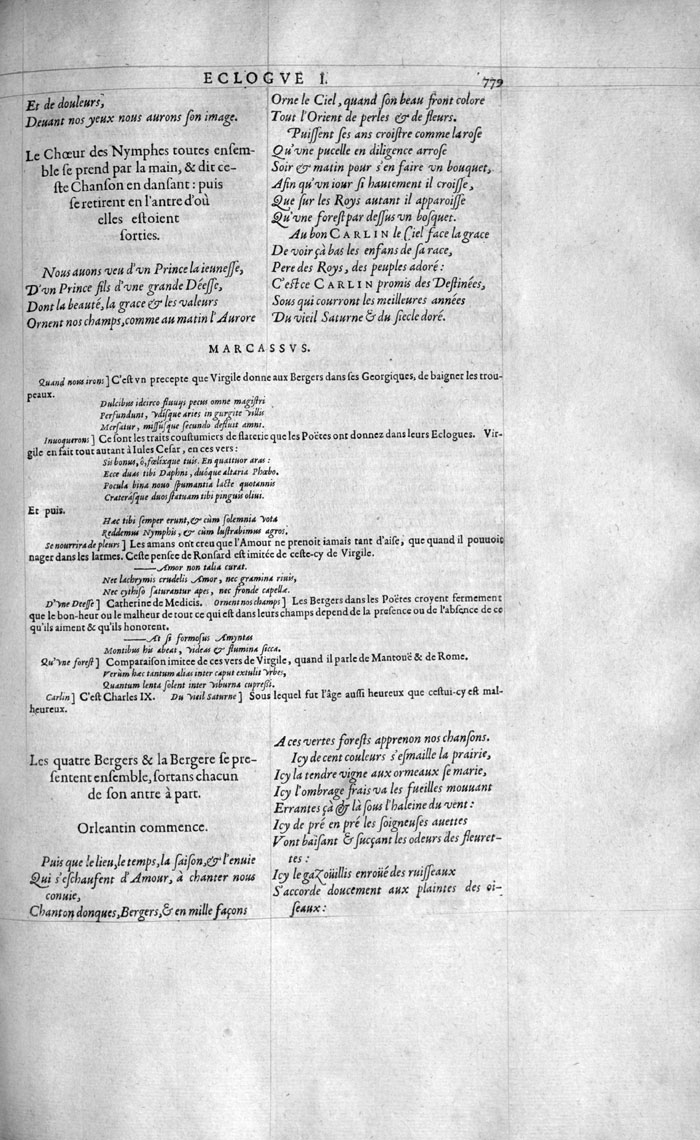 ECLOGVE I. 779
Et de douleurs,
Deuant nos yeux nous aurons ſon image.
Le Chœur des Nymphes toutes enſem-
ble ſe prend par la main, & dit ce-
ſte Chanſon en danſant : puis
ſe retirent en l'antre d'où
elles eſtoient
ſorties.
Nous auons veu d'vn Prince la ieuneſſe,
D'vn Prince fils d'vne grande Déeſſe,
Dont la beauté, la grace & les valeurs
Ornent nos champs, comme au matin l'Aurore
Orne le Ciel, quand ſon beau front colore
Tout l'Orient de perles & de fleurs.
Puiſſent ſes ans croiſtre comme la roſe
Qu'vne pucelle en diligence arroſe
Soir & matin pour s'en faire vn bouquet,
Afin qu'vn iour ſi hautement il croiſſe,
Que ſur les Roys autant il apparoiſſe
Qu'vne foreſt par deſſus vn boſquet.
Au bon CARLIN le Ciel face la grace
De voir çà bas les enfans de ſa race,
Pere des Roys, des peuples adoré :
C'eſt ce CARLIN promis des Deſtinées,
Sous qui courront les meilleures années
Du vieil Saturne & du ſiecle doré.
MARCASSVS.
Quand nous irons] C'eſt vn precepte que Virgile donne aux Bergers dans ſes Georgiques, de baigner les trou-
peaux.
Dulcibus idcirco fluuijs pecus omne magiſtri
Perfundunt, vdiſque aries in gurgite villis
Merſatur, miſſúſque ſecundo defluit amni.
Inuoquerons] Ce ſont les traits couſtumiers de flaterie que les Poëtes ont donnez dans leurs Eclogues. Vir-
gile en fait tout autant à Iules Ceſar, en ces vers :
Sis bonus, ô, fœlixque tuis. En quattuor aras :
Ecce duas tibi Daphni, duóque altaria Phœbo.
Pocula bina nouo ſpumantia lacte quotannis
Crateráſque duos ſtatuam tibi pinguis oliui.
Et puis.
Hæc tibi ſemper erunt, & cùm ſolemnia vota
Reddemus Nymphis, & cùm luſtrabimus agros.
Se nourrira de pleurs] Les amans ont creu que l'Amour ne prenoit iamais tant d'aiſe, que quand il pouuoit
nager dans les larmes. Ceſte penſee de Ronſard eſt imitée de ceſte-cy de Virgile.
——Amor non talia curat.
Nec lachrymis crudelis Amor, nec gramina riuis,
Nec cythiſo ſaturantur apes, nec fronde capellæ.
D'vne Deeſſe] Catherine de Medicis. Ornent nos champs] Les Bergers dans les Poëtes croyent fermement
que le bon-heur ou le malheur de tout ce qui eſt dans leurs champs depend de la preſence ou de l'abſence de ce
qu'ils aiment & qu'ils honorent.
——At ſi formoſus Amyntas
Montibus his abeat, videas & flumina ſicca.
Qu'vne foreſt] Comparaiſon imitee de ces vers de Virgile, quand il parle de Mantouë & de Rome.
Verùm hæc tantum alias inter caput extulit vrbes,
Quantum lenta ſolent inter viburna cupreſſi.
Carlin] C'eſt Charles IX. Du vieil Saturne] Sous lequel fut l'âge auſſi heureux que ceſtui-cy eſt mal-
heureux.
Les quatre Bergers & la Bergere ſe pre-
ſentent enſemble, ſortans chacun
de ſon antre à part.
Orleantin commence.
Puis que le lieu, le temps, la ſaiſon, & l'enuie
Qui s'eſchaufent d'Amour, à chanter nous
conuie,
Chanton donques, Bergers, & en mille façons
A ces vertes foreſts apprenon nos chanſons.
Icy de cent couleurs s'eſmaille la prairie,
Icy la tendre vigne aux ormeaux ſe marie,
Icy l'ombrage frais va les fueilles mouuant
Errantes çà & là ſous l'haleine du vent :
Icy de pré en pré les ſoigneuſes auettes
Vont baiſant & ſucçant les odeurs des fleuret-
tes :
Icy le gazoüillis enroüé des ruiſſeaux
S'accorde doucement aux plaintes des oi-
ſeaux :